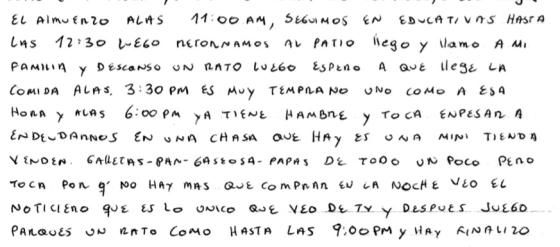 EL AlMUERZO ALAS 11:00 AM, SEGUIMOS EN EDUCATIVAS HASTA
LAS 12:30 LUEGO RETORNAMOS AL PATIO llego y llamo A MI
FAMILIA y DESCANSO UN RATO LUEGO ESPERO A QUE llEGE LA
COMIDA ALAS. 3:30 PM ES MUY TEMPRANO UNO COME A ESA
HORA y ALAS 6:00 PM yA TIENE HAMBRE y TOCA ENPESAR A
ENDEUDARNOS EN UNA CHASA QUE HAY ES UNA MINI TIENDA
VENDEN. GALLETAS-PAN-GASEOSA-PAPAS DE TODO UN POCO PERO
TOCA POR q' NO HAY MAS QUE COMPRAR EN LA NOCHE VEO EL
NOTICIERO QUE ES LO UNICO QUE VEO DE TV y DESPUES JUEGO
PARQUES UN RATO COMO HASTA LAS 9:00 PM y HAY FINALIZO